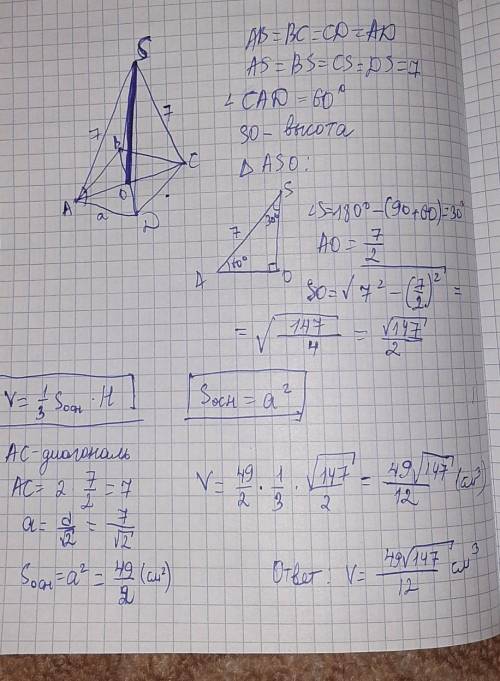 AB=BC=CD=AD
AS=BS=CS=DS=7
∠CAD=60°
SO-высота
ΔASO:
S
7
7
B
C
O
A
a
D
S
7
30°
60°
A
O
∠S=180°-(90+60)=30°
AO=7/2
SO=√(7²-(7/2)²)=
=√(147/4)=√147/2
V=1/3 Sосн·H
Sосн=a²
AC-диагональ
AC=2·7/2=7
a=d/√2=7/√2
Sосн=a²=49/2(см²)
V=49/2·1/3·√147/2=49√147/12(см³)
Ответ: V=49√147/12 см³